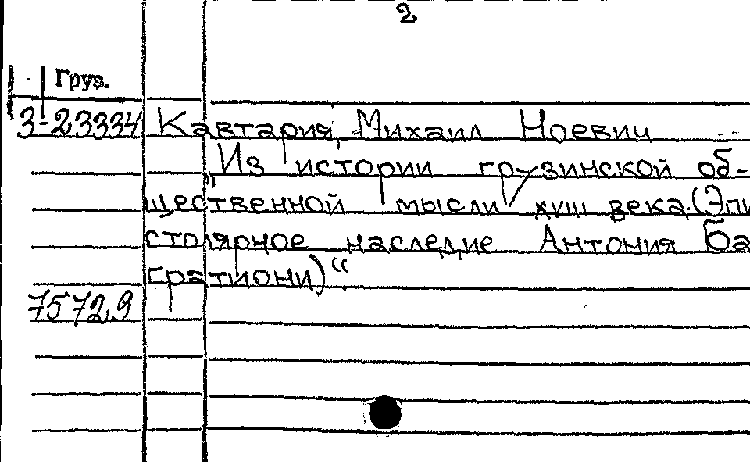 2
Груз.
З-23334 Кавтария, Михаил Ноевич
"Из истории грузинской об-
щественной мысли XVIII века.(Эпи
столярное наследие Антония Ба
гратиони)"
7572,9